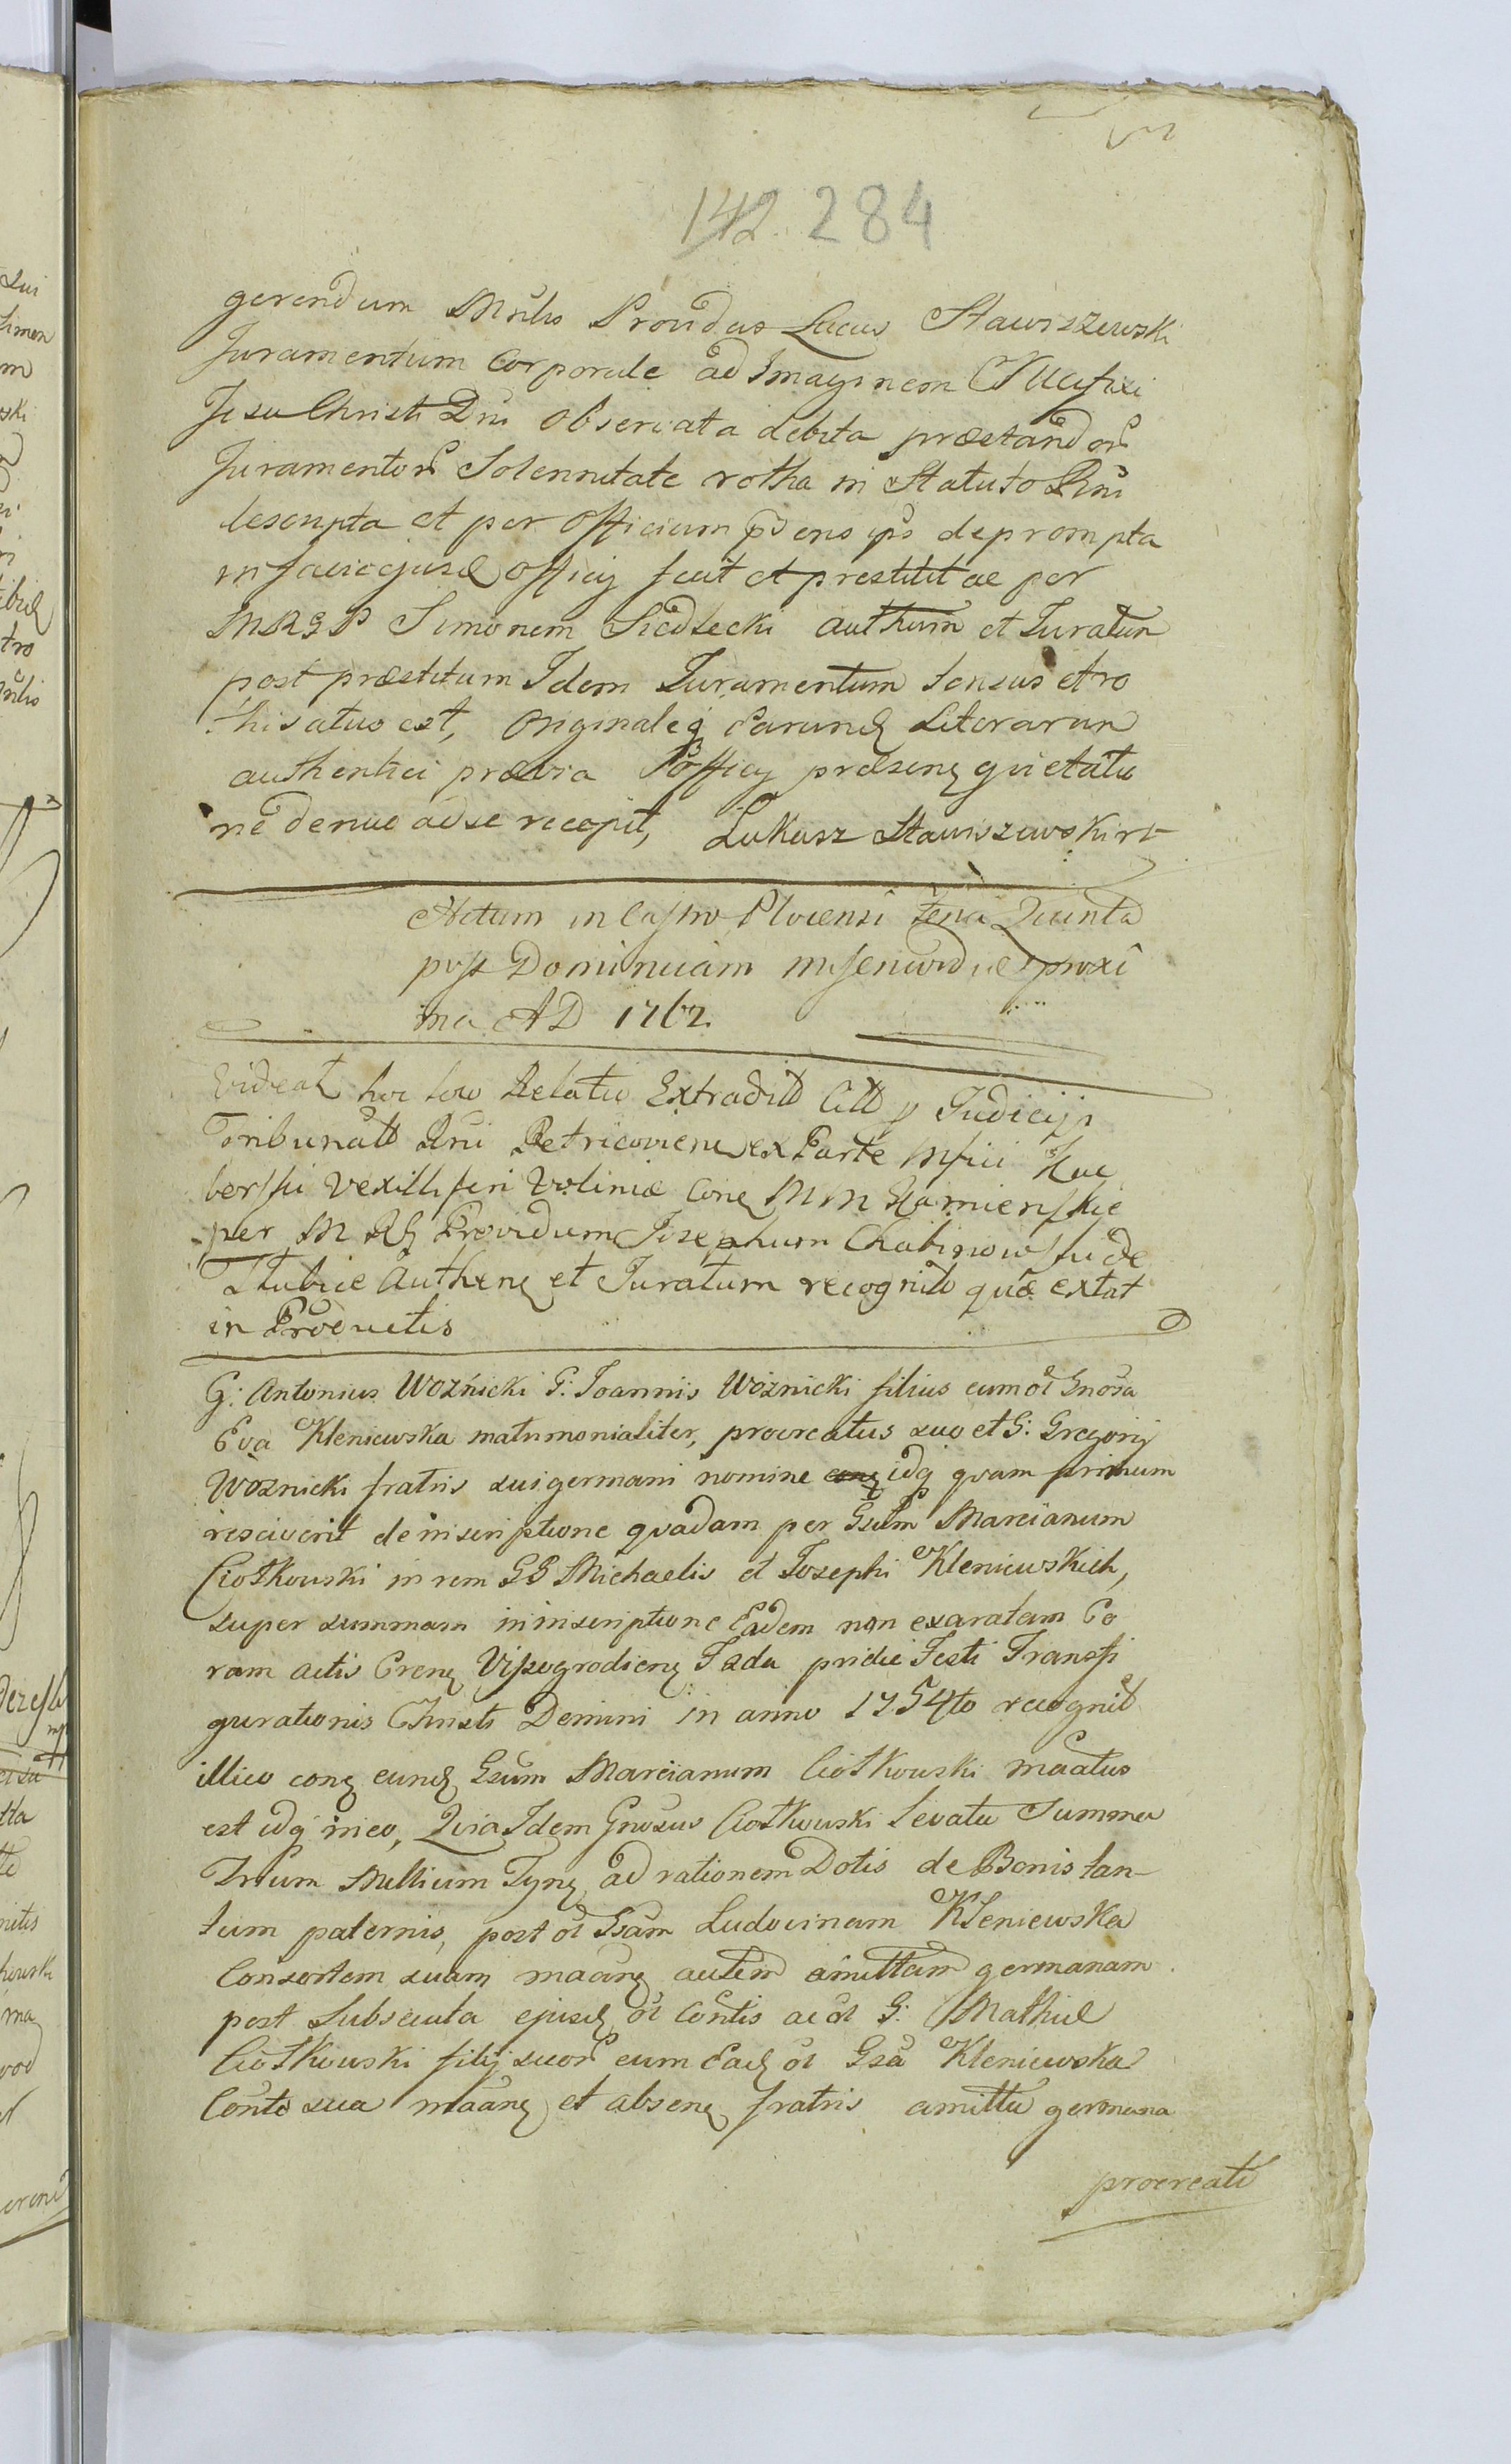 142. 284
gerendum Mnlis Providus Lucas Stawiszewski
Juramentum Corporale ad Imaginem Crucifixi
Jesu Christi Dni observata debita præstandor
Juramentor Solennitate rotha in Statuto Rni
descripta et per Officium pdens ips deprompta
in facie ejusd officij fecit et prestitit ac per
MRGP Simonem Siedlecki authum et Juratum
post præstitum Idem Juramentum sensus et ro
thisatus est, Originaleq earund Literarum
authentici prævia Officij præsenq quietatio
ne denuo ad se recepit, Łukasz Stawiszewski
Actum in Castro Plocensi feria Quinta
post Dominicam misericordiæ proxi
ma AD 1762.
Evideat hoc loco Relatio Extradit Citt p Judicijs
Tribunatt Rni Petricoviens ex Parte Mfici Kac
berski Vexilliferi Voliniæ conq MM Kamienskie
per M RG Providum Josephum Chabinowski de
Stubice Authenq et Juratum recognit quæ extat
in Productis
G: Antonius Woźnicki G: Joannis Woźnicki filius cum ol Gnosa
Eva Kleniewska matrimonialiter, procreatus suo et G: Gregorij
Woznicki fratris sui germani nomine idq quam primum
resciverit de inscriptione quadam per Gsum Marcianum
Ciotkowski in rem GG Michaelis et Josephi Kleniewskich,
super summam in inscriptione Eadem non exaratam Co
ram actis Crenq Viszogrodienq Fada pridie Festi Transfi
gurationis Christi Domini in anno 1754to recognit
illico conq eund Gsum Marcianum Ciotkowski maatus
est idq ineo, Quia Idem Gnosus Ciotkowski levata Summa
Trium Millium Fynq ad rationem Dotis de Bonis tan-
tum paternis, post ol Gsam Ludovinam Kleniewska
Consortem suam maanq autem amittam germanam
post Subsecuta ejusd ol Contis ac ol G: Mathiæ
Ciotkowski filij suor cum Ead ol Gsa Kleniewska
Conte sua maanq et absenq fratris amitta germana
procreati